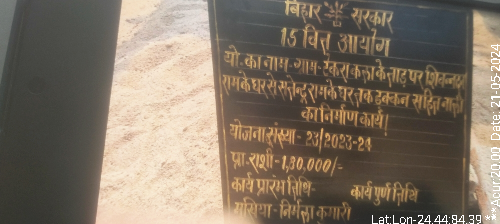 बिहार सरकार
15 वित्त आयोग
यो. का नाम-ग्राम-टेकरा कला के ताड़ पर शिवनन्दन
राम के घर से सत्येन्द्र राम के घर तक ढक्कन सहित नाली
का निर्माण कार्य।
योजना संख्या - 23/2023-24
प्रा. राशी - 1,30,000/-
कार्य प्रारंभ तिथि- कार्य पुर्ण तिथि
मुखिया - निर्मला कुमारी
Date: 21-05-2024
LatLon-24.44:84.39